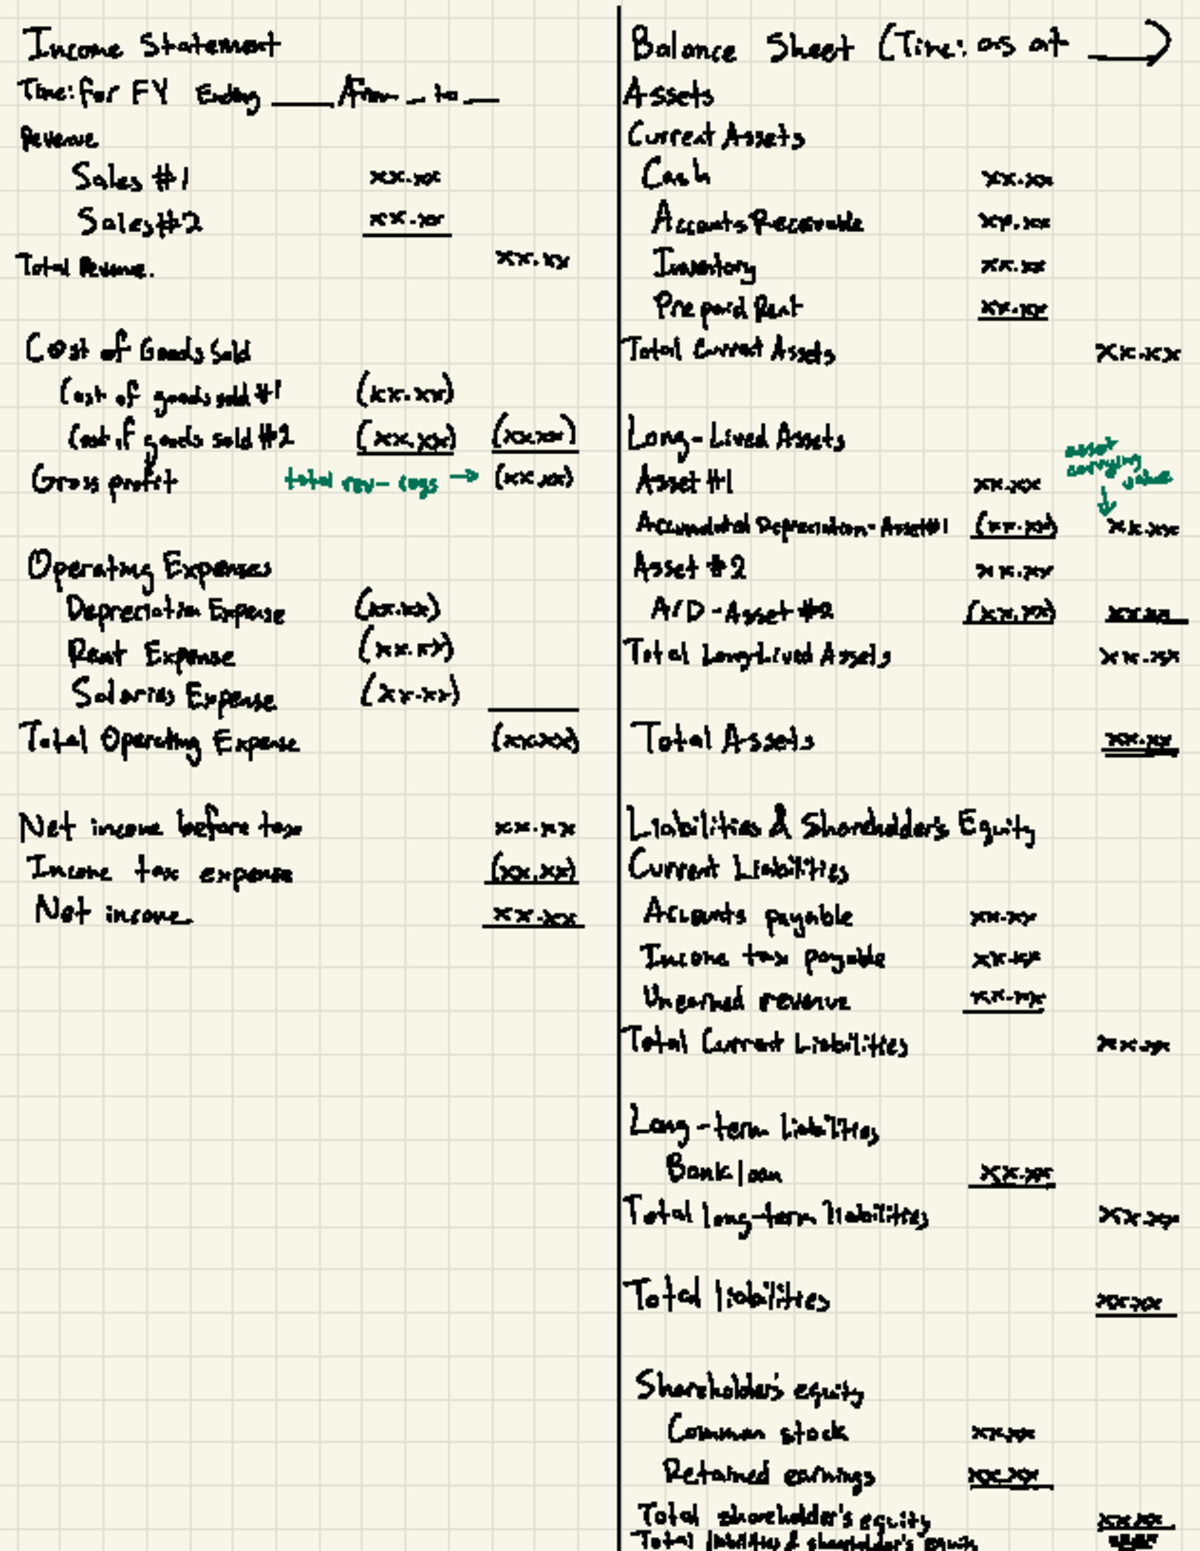 Income Statement
Time: for FY Ending ____, From __ to __
Revenue
Sales #1 xx.xx
Sales #2 xx.xx
Total Revenue. xx.xx
Cost of Goods Sold
Cost of goods sold #1 (xx.xx)
Cost of goods sold #2 (xx.xx) (xx.xx)
Gross profit total rev - cogs → (xx.xx)
Operating Expenses
Depreciation Expense (xx.xx)
Rent Expense (xx.xx)
Salaries Expense (xx.xx)
Total Operating Expense (xx.xx)
Net income before tax xx.xx
Income tax expense (xx.xx)
Net income xx.xx
Balance Sheet (Time: as at ____)
Assets
Current Assets
Cash xx.xx
Accounts Receivable xx.xx
Inventory xx.xx
Prepaid Rent xx.xx
Total Current Assets xx.xx
Long-Lived Assets
asset carrying value ↓
Asset #1 xx.xx
Accumulated Depreciation - Asset #1 (xx.xx) xx.xx
Asset #2 xx.xx
A/D - Asset #2 (xx.xx) xx.xx
Total Long-Lived Assets xx.xx
Total Assets xx.xx
Liabilities & Shareholder's Equity
Current Liabilities
Accounts payable xx.xx
Income tax payable xx.xx
Unearned revenue xx.xx
Total Current Liabilities xx.xx
Long-term liabilities
Bank loan xx.xx
Total long-term liabilities xx.xx
Total liabilities xx.xx
Shareholder's equity
Common stock xx.xx
Retained earnings xx.xx
Total shareholder's equity xx.xx
Total liabilities & shareholder's equity xx.xx